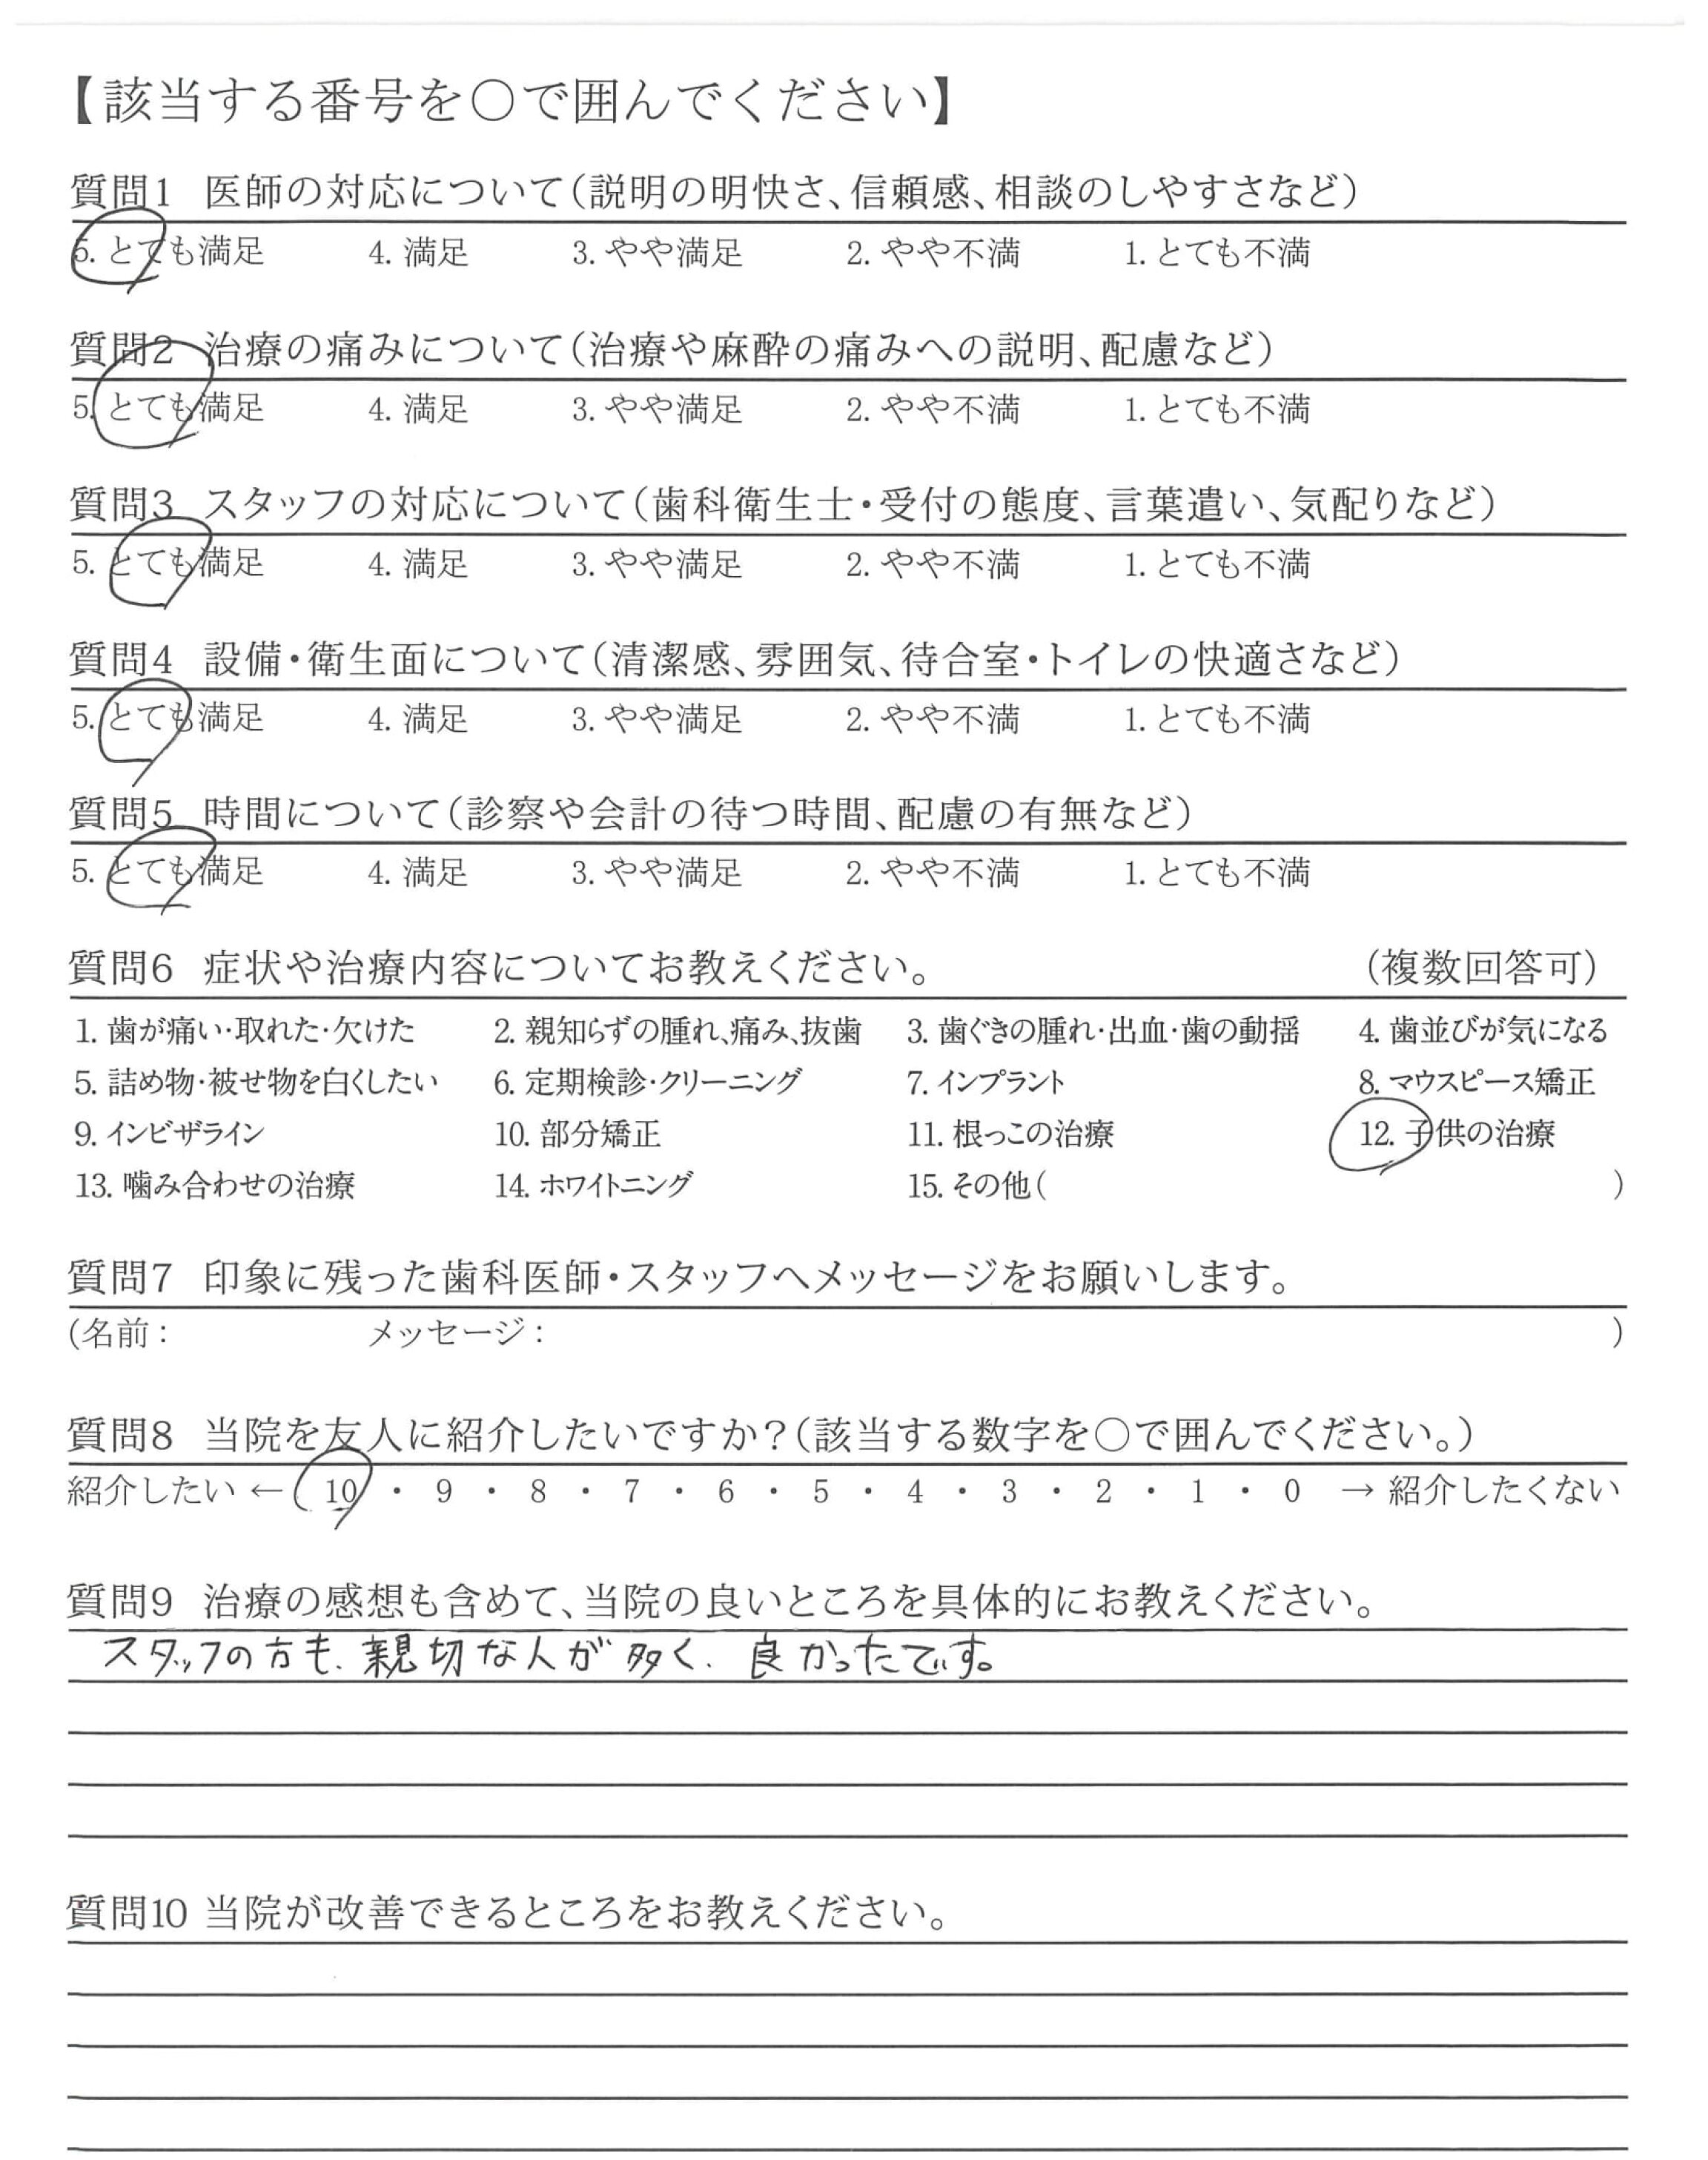 【該当する番号を○で囲んでください】
質問1 医師の対応について(説明の明快さ、信頼感、相談のしやすさなど)
5. とても満足 4. 満足 3. やや満足 2. やや不満 1. とても不満
質問2 治療の痛みについて(治療や麻酔の痛みへの説明、配慮など)
5. とても満足 4. 満足 3. やや満足 2. やや不満 1. とても不満
質問3 スタッフの対応について(歯科衛生士・受付の態度、言葉遣い、気配りなど)
5. とても満足 4. 満足 3. やや満足 2. やや不満 1. とても不満
質問4 設備・衛生面について(清潔感、雰囲気、待合室・トイレの快適さなど)
5. とても満足 4. 満足 3. やや満足 2. やや不満 1. とても不満
質問5 時間について(診察や会計の待つ時間、配慮の有無など)
5. とても満足 4. 満足 3. やや満足 2. やや不満 1. とても不満
質問6 症状や治療内容についてお教えください。 (複数回答可)
1. 歯が痛い・取れた・欠けた 2. 親知らずの腫れ、痛み、抜歯 3. 歯ぐきの腫れ・出血・歯の動揺 4. 歯並びが気になる
5. 詰め物・被せ物を白くしたい 6. 定期検診・クリーニング 7. インプラント 8. マウスピース矯正
9. インビザライン 10. 部分矯正 11. 根っこの治療 12. 子供の治療
13. 噛み合わせの治療 14. ホワイトニング 15. その他( )
質問7 印象に残った歯科医師・スタッフへメッセージをお願いします。
(名前: メッセージ: )
質問8 当院を友人に紹介したいですか?(該当する数字を○で囲んでください。)
紹介したい ← 10 ・ 9 ・ 8 ・ 7 ・ 6 ・ 5 ・ 4 ・ 3 ・ 2 ・ 1 ・ 0 → 紹介したくない
質問9 治療の感想も含めて、当院の良いところを具体的にお教えください。
スタッフの方も、親切な人が多く、良かったです。
質問10 当院が改善できるところをお教えください。